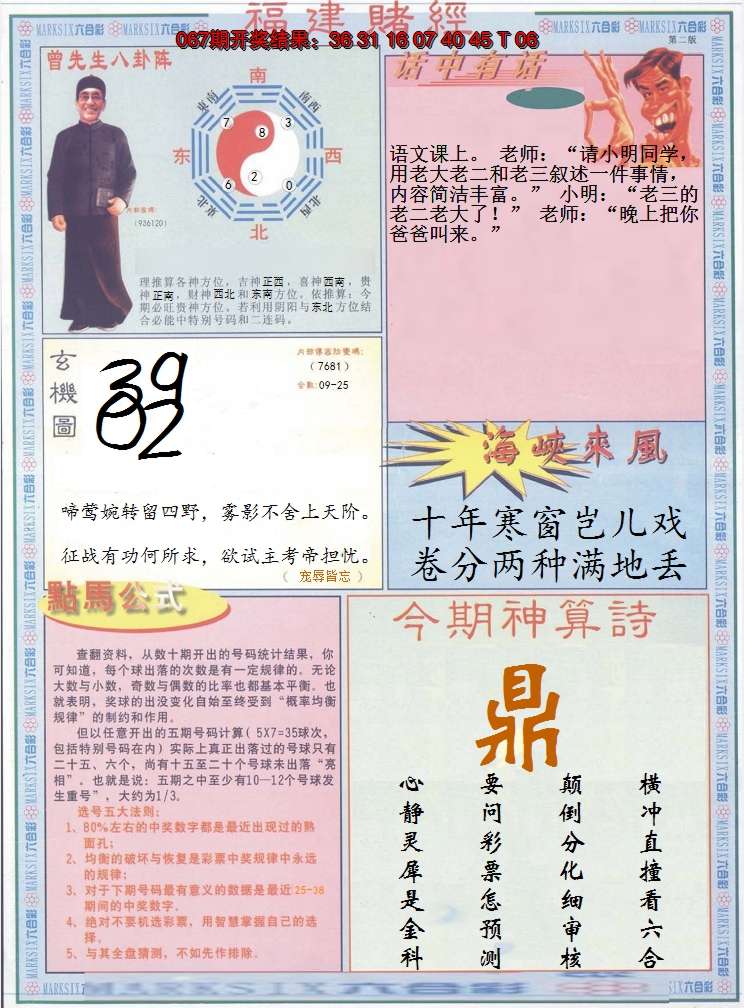 福建賭經
067期开奖结果：36 31 16 07 40 45 T 06
MARKSIX六合彩
第二版
曾先生八卦阵
南
东南
南西
7
8
3
东
西
6
2
0
东北
北西
北
内部密碼:
（936120）
理推算各神方位，吉神正西，喜神西南，贵
神正南，财神西北和东南方位。依推算：今
期必旺贵神方位。若利用阴阳与东北方位结
合必能中特别号码和二连码。
话中有话
语文课上。 老师：“请小明同学，
用老大老二和老三叙述一件事情，
内容简洁丰富。” 小明：“老三的
老二老大了！” 老师：“晚上把你
爸爸叫来。”
玄機圖
39
02
（7681）
合数:09-25
啼莺婉转留四野，雾影不舍上天阶。
征战有功何所求，欲试主考帝担忧。
（ 宠辱皆忘 ）
海峽來風
十年寒窗岂儿戏
卷分两种满地丢
點馬公式
查翻资料，从数十期开出的号码统计结果，你
可知道，每个球出落的次数是有一定规律的。无论
大数与小数，奇数与偶数的比率也都基本平衡。也
就表明，奖球的出没变化自始至终受到“概率均衡
规律”的制约和作用。
但以任意开出的五期号码计算（5X7=35球次，
包括特别号码在内）实际上真正出落过的号球只有
二十五、六个，尚有十五至二十个号球未出落“亮
相”。也就是说：五期之中至少有10—12个号球发
生重号”，大约为1/3。
选号五大法则：
1、80%左右的中奖数字都是最近出现过的熟
面孔；
2、均衡的破坏与恢复是彩票中奖规律中永远
的规律；
3、对于下期号码最有意义的数据是最近25-38
期间的中奖数字。
4、绝对不要机选彩票，用智慧掌握自己的选
择。
5、与其全盘猜测，不如先作排除。
今期神算詩
鼎
横冲直撞看六合
颠倒分化细审核
要问彩票怎预测
心静灵犀是金科